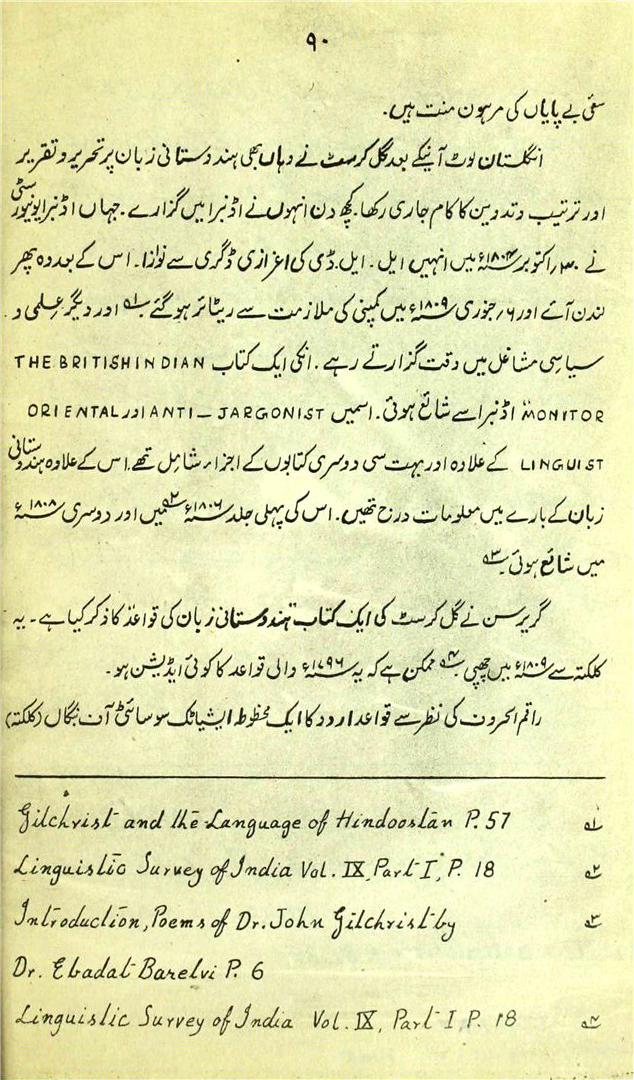 ۹۰
سعیٔ بے پایاں کی مرہون منت ہیں۔
انگلستان لوٹ آنیکے بعد گل کرسٹ نے وہاں بھی ہندوستانی زبان پر تحریر و تقریر
اور ترتیب و تدوین کا کام جاری رکھا۔ کچھ دن انہوں نے اڈنبرا میں گزارے۔ جہاں اڈنبرا یونیورسٹی
نے ۳۰ر اکتوبر ۱۸۰۴ء میں انہیں ایل۔ ایل۔ ڈی کی اعزازی ڈگری سے نوازا۔ اس کے بعد وہ پھر
لندن آئے اور ۶ر جنوری ۱۸۰۹ء میں کمپنی کی ملازمت سے ریٹائر ہو گئے ۱؎ اور دیگر علمی و
سیاسی مشاغل میں وقت گزارتے رہے۔ انکی ایک کتاب THE BRITISH INDIAN
MONITOR اڈنبرا سے شائع ہوئی۔ اسمیں ANTI – JARGONIST اور ORIENTAL
LINGUIST کے علاوہ اور بہت سی دوسری کتابوں کے اجزاء شامل تھے۔ اس کے علاوہ ہندوستانی
زبان کے بارے میں معلومات درج تھیں۔ اس کی پہلی جلد ۱۸۰۶ء ۲؎ میں اور دوسری ۱۸۰۸ء
میں شائع ہوئی۔ ۳؎
گریرسن نے گل کرسٹ کی ایک کتاب ہندوستانی زبان کی قواعد کا ذکر کیا ہے۔ یہ
کلکتہ سے ۱۸۰۹ء میں چھپی ۴؎ ممکن ہے کہ یہ ۱۷۹۶ء والی قواعد کا کوئی ایڈیشن ہو۔
راقم الحروف کی نظر سے قواعد اردو کا ایک مخطوطہ ایشیاٹک سوسائٹی آف بنگال (کلکتہ)
۱؎ Gilchrist and the Language of Hindoostan P. 57
۲؎ Linguistic Survey of India Vol. IX, Part I, P. 18
۳؎ Introduction, Poems of Dr. John Gilchrist by
Dr. Ebadat Barelvi P. 6
۴؎ Linguistic Survey of India Vol. IX, Part I, P. 18